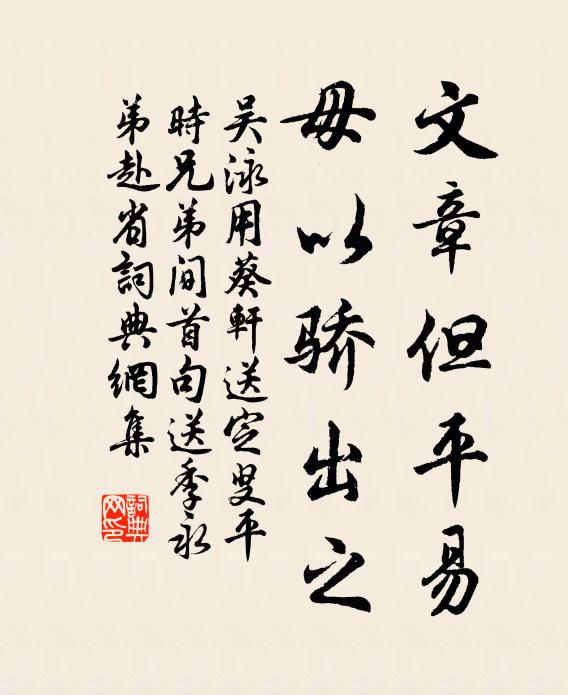 文章但平易
毋以骄出之
吴泳用葵軒送定叟平
時兄弟间首句送季永
弟赴省詞典網集
詞典網印